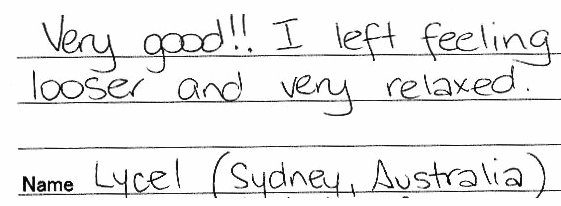 Very good!! I left feeling
looser and very relaxed.
Name Lycel (Sydney, Australia)